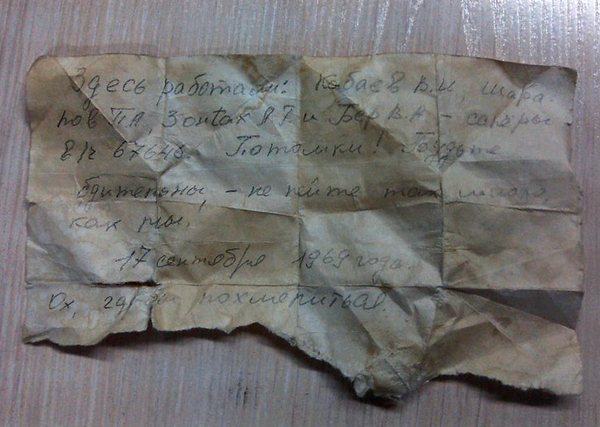 Здесь работали: Кабаев В.И, Шара-
пов П.А, Зонтах Я Г и Бер В.А - сапёры
в/ч 67643. Потомки! Будьте
бдительны - не пейте так много,
как мы!
17 сентября 1969 года.
Ох, где бы похмелиться!